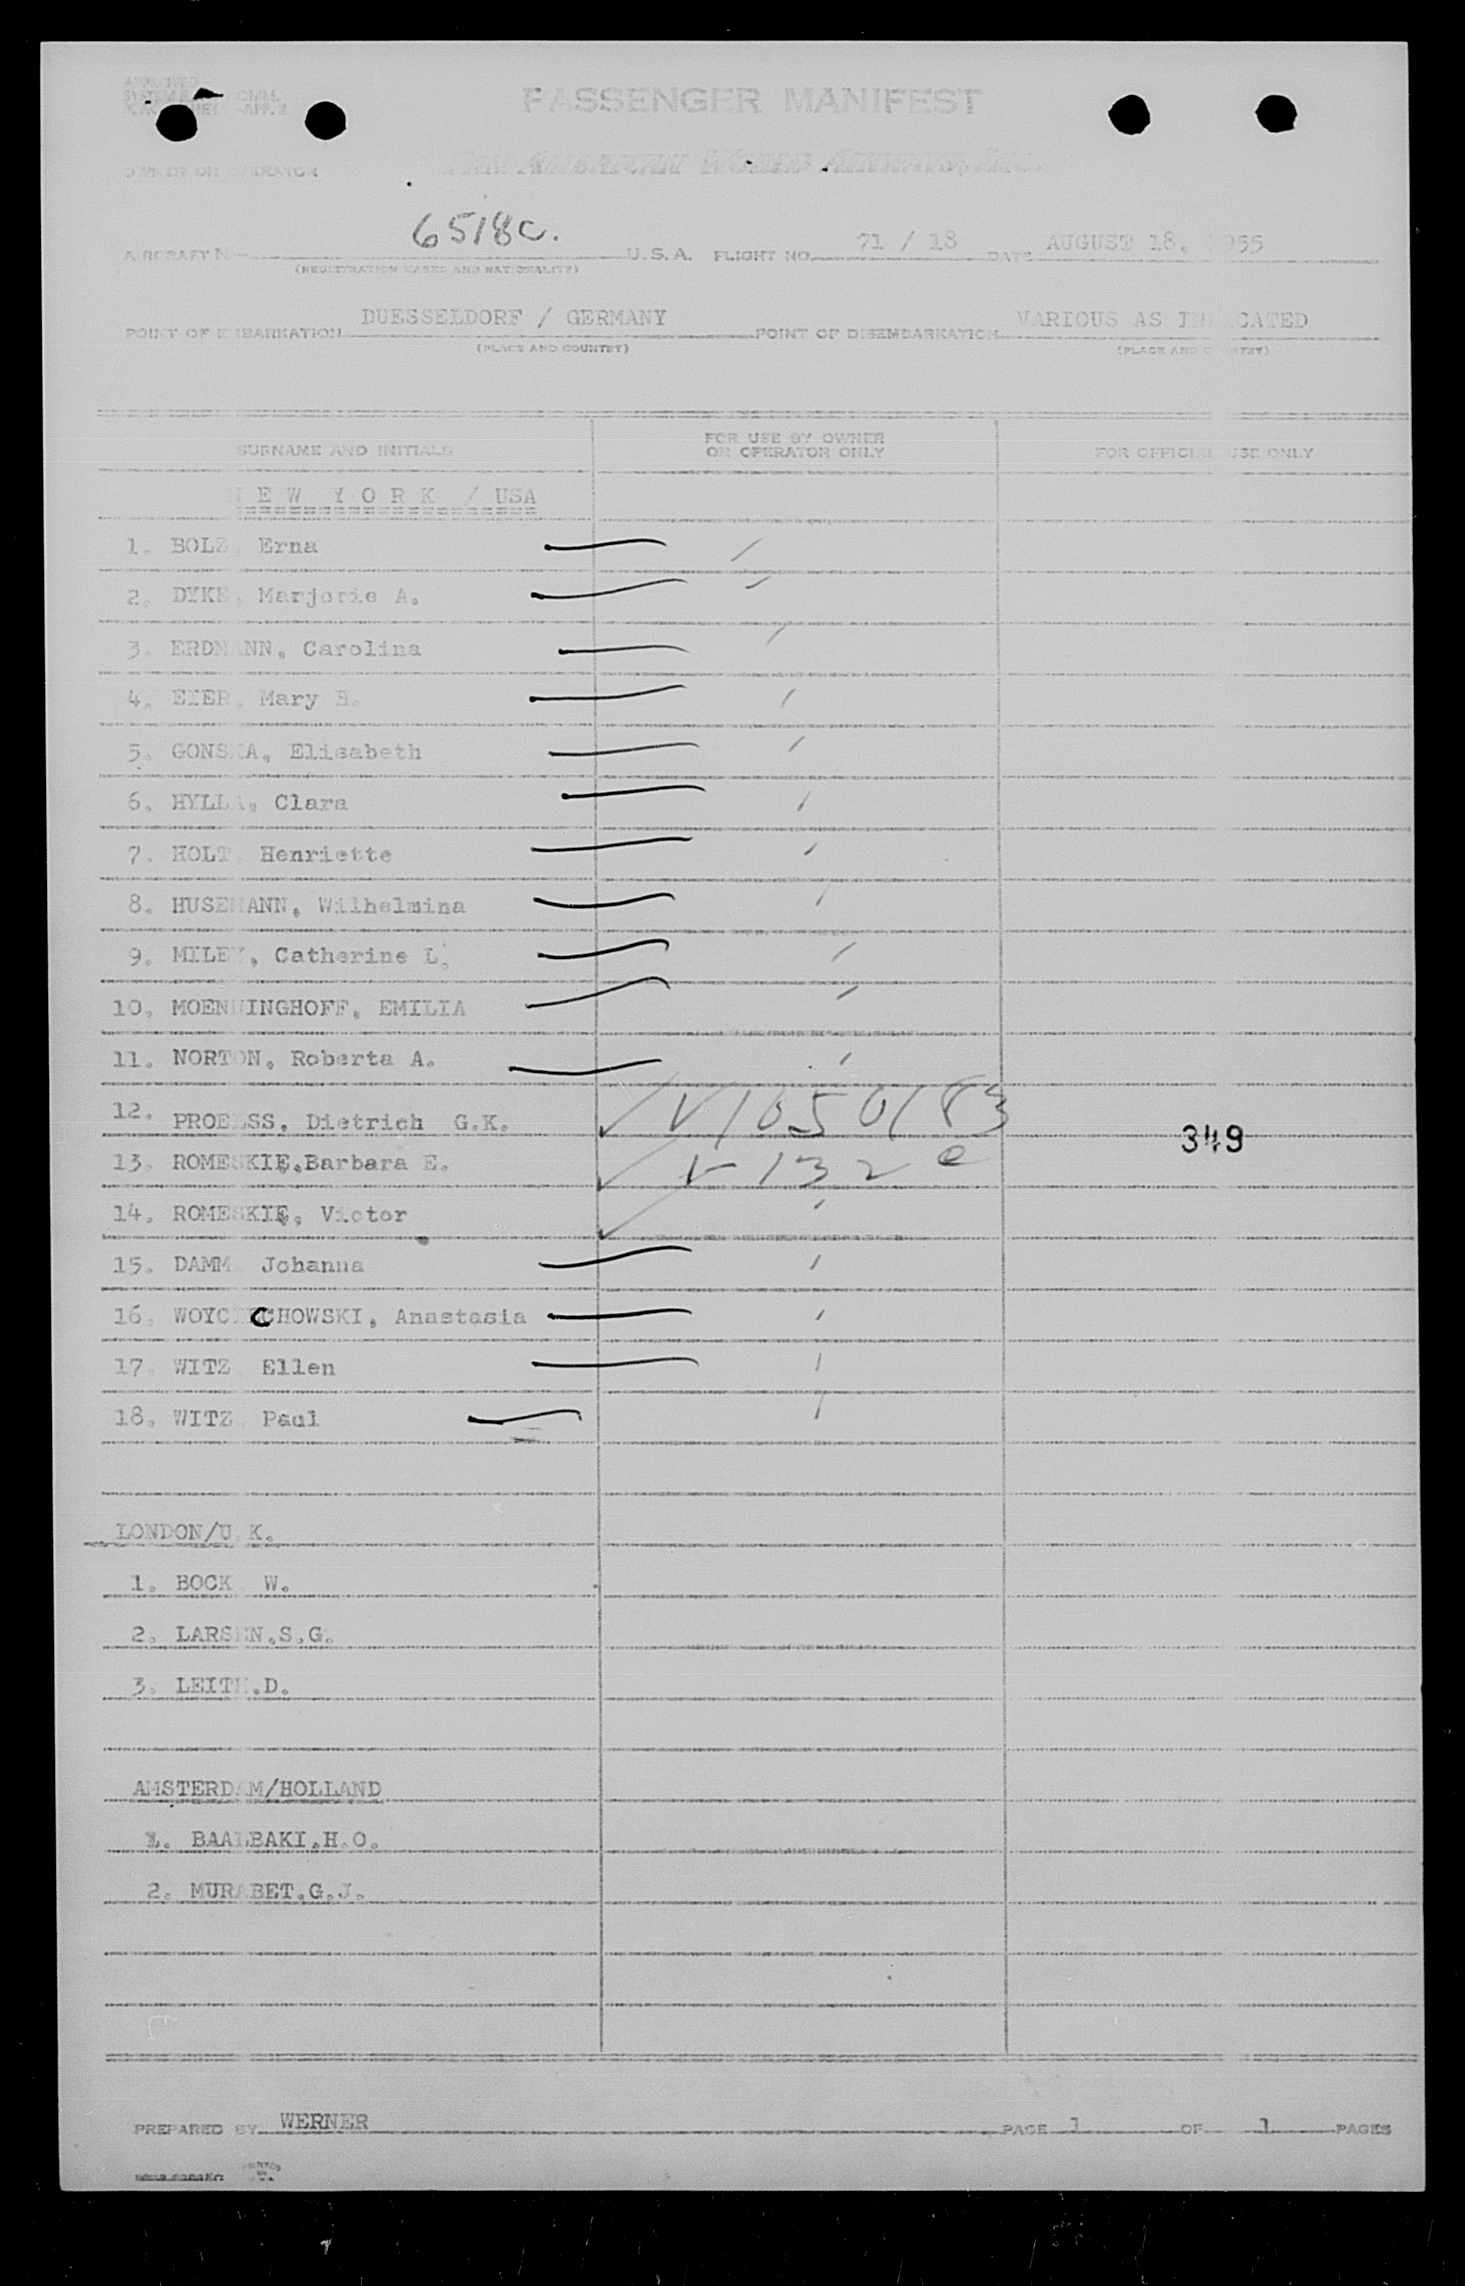 PASSENGER MANIFEST
PAN AMERICAN WORLD AIRWAYS, INC.
OWNER OR OPERATOR
AIRCRAFT N- 6518C. U.S.A. FLIGHT NO. 71 / 18 DATE AUGUST 18, 1955
(REGISTRATION MARKS AND NATIONALITY)
POINT OF EMBARKATION DUESSELDORF / GERMANY POINT OF DISEMBARKATION VARIOUS AS INDICATED
(PLACE AND COUNTRY) (PLACE AND COUNTRY)
SURNAME AND INITIALS FOR USE BY OWNER OR OPERATOR ONLY FOR OFFICIAL USE ONLY
N E W Y O R K / USA
1. BOLZ, Erna
2. DYKE, Marjorie A.
3. ERDMANN, Carolina
4. EYER, Mary B.
5. GONSKA, Elisabeth
6. HYLLA, Clara
7. HOLT, Henriette
8. HUSEMANN, Wilhelmina
9. MILEY, Catherine L.
10. MOENNINGHOFF, EMILIA
11. NORTON, Roberta A.
12. PROELSS, Dietrich G.K. V1050183
349
13. ROMESKIE, Barbara E. V-132 e
14. ROMESKIE, Victor
15. DAMM, Johanna
16. WOYCIECHOWSKI, Anastasia
17. WITZ, Ellen
18. WITZ, Paul
LONDON/U.K.
1. BOCK, W.
2. LARSEN.S.G.
3. LEITH.D.
AMSTERDAM/HOLLAND
1. BAALBAKI.H.O.
2. MURABET.G.J.
PREPARED BY WERNER PAGE 1 OF 1 PAGES